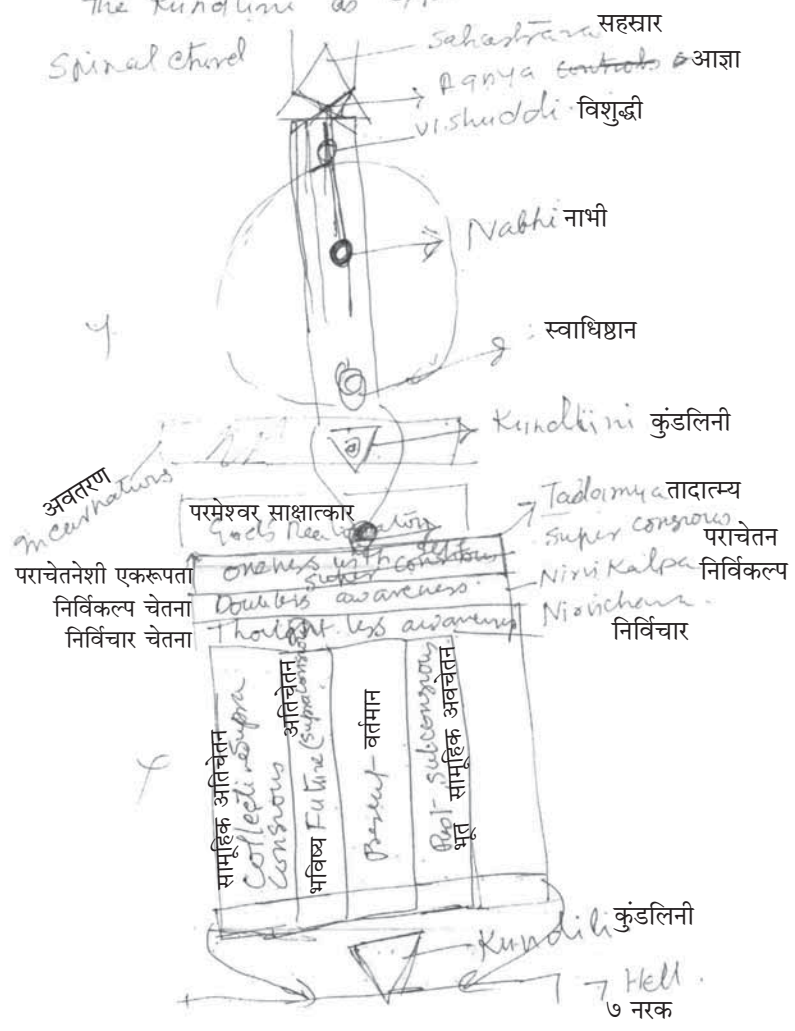 The Kundlini as
Spinal chord
Sahashrara सहस्रार
Agnya controls आज्ञा
Vishuddi विशुद्धी
Nabhi नाभी
स्वाधिष्ठान
Kundlini कुंडलिनी
अवतरण
Incarnations
परमेश्वर साक्षात्कार
Tadatmya तादात्म्य
super consious
पराचेतन
पराचेतनेशी एकरूपता
oneness with
super conscious
Nirvikalpa निर्विकल्प
निर्विकल्प चेतना
Doubtless awareness
निर्विचार चेतना
Thought less awareness
Nirvichara
निर्विचार
सामूहिक अतिचेतन
Collective Supra
Consious
अतिचेतन
भविष्य Future (Supraconsious)
Present वर्तमान
Past Subconsious
भूत सामूहिक अवचेतन
Kundili कुंडलिनी
7 Hell.
७ नरक